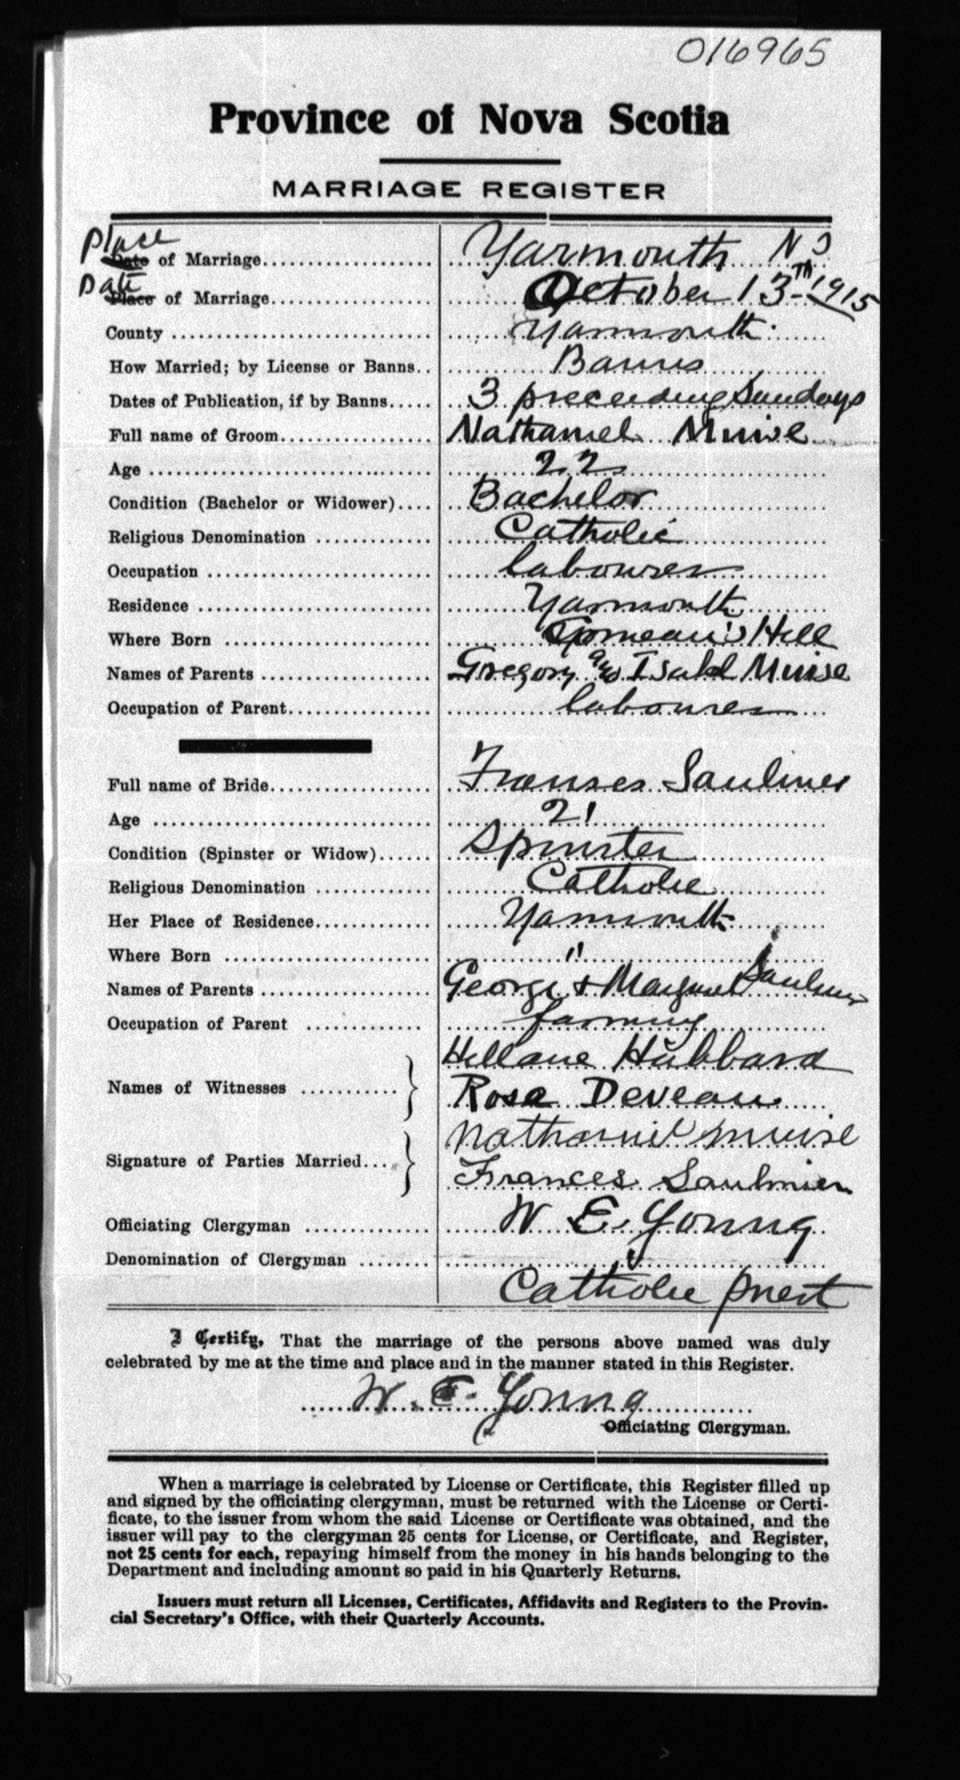 016965
Province of Nova Scotia
MARRIAGE REGISTER
Place
Date of Marriage.................... Yarmouth N S
Date
Place of Marriage................... October 13TH 1915
County ............................. Yarmouth
How Married; by License or Banns.. Banns
Dates of Publication, if by Banns..... 3 preceeding Sundays
Full name of Groom.................. Nathaniel Muise
Age ................................ 22
Condition (Bachelor or Widower).... Bachelor
Religious Denomination ............ Catholic
Occupation ......................... labourer
Residence .......................... Yarmouth
Where Born ........................ Comeau's Hill
Names of Parents .................... Gregory and Isabel Muise
Occupation of Parent................. labourer
Full name of Bride.................... Franses Saulnier
Age ................................ 21
Condition (Spinster or Widow)...... Spinster
Religious Denomination ............ Catholic
Her Place of Residence.............. Yarmouth
Where Born ........................ "
Names of Parents .................... George & Margaret Saulnier
Occupation of Parent .............. farming
Names of Witnesses ............ } Hubbard
Rosa Deveau
Signature of Parties Married.... } Nathaniel Muise
Frances Saulnier
Officiating Clergyman .............. W E. Young
Denomination of Clergyman ........ Catholic priest
I Certify, That the marriage of the persons above named was duly
celebrated by me at the time and place and in the manner stated in this Register.
W. E. Young
Officiating Clergyman.
When a marriage is celebrated by License or Certificate, this Register filled up
and signed by the officiating clergyman, must be returned with the License or Certi-
ficate, to the issuer from whom the said License or Certificate was obtained, and the
issuer will pay to the clergyman 25 cents for License, or Certificate, and Register,
not 25 cents for each, repaying himself from the money in his hands belonging to the
Department and including amount so paid in his Quarterly Returns.
Issuers must return all Licenses, Certificates, Affidavits and Registers to the Provin-
cial Secretary's Office, with their Quarterly Accounts.